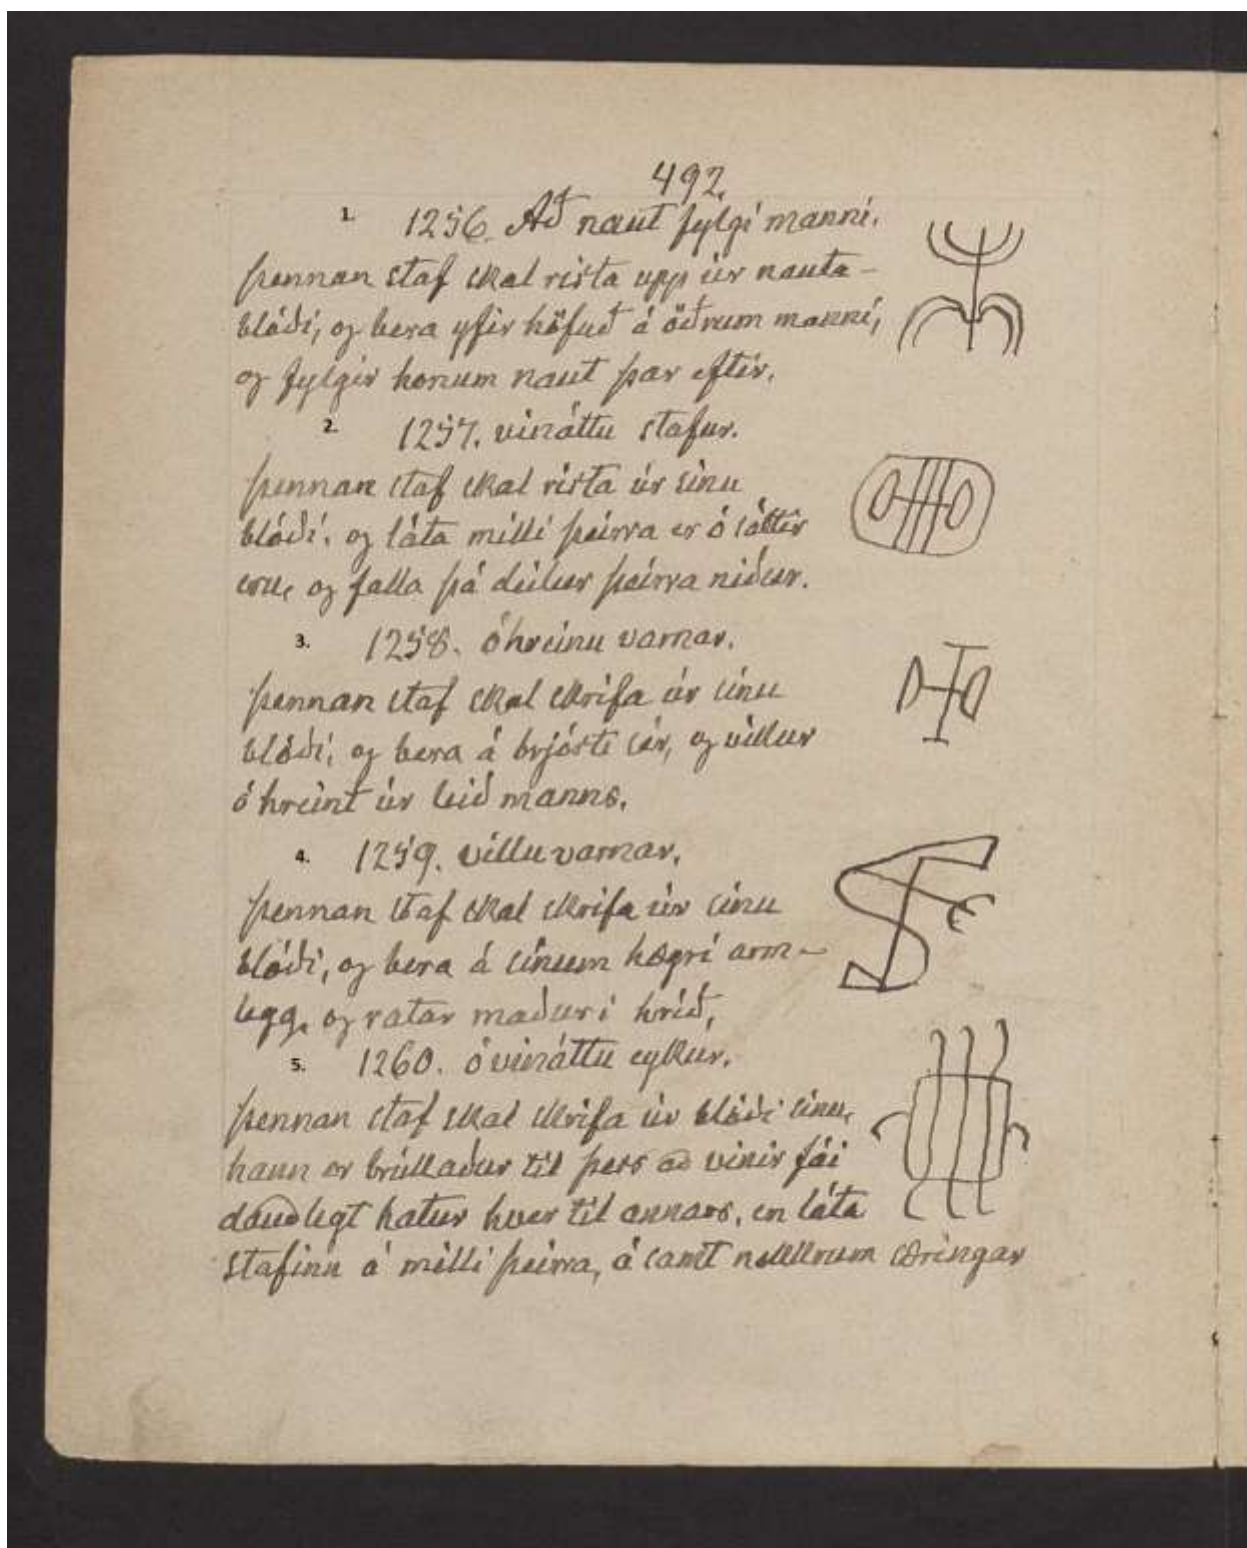 492.
1. 1256. Að naut fylgi manni.
þennan staf skal rista upp úr nauta-
blóði, og bera yfir höfuð á öðrum manni,
og fylgir honum naut þar eftir.
2. 1257. vináttu stafur.
þennan staf skal rista úr sínu
blóði, og láta milli þeirra er ósáttir
eru, og falla þá deilur þeirra niður.
3. 1258. óhreinu varnar.
þennan staf skal skrifa úr sínu
blóði, og bera á brjósti sér, og villur
óhreint úr leið manns.
4. 1259. villu varnar.
þennan staf skal skrifa úr sínu
blóði, og bera á sínum hægri arm-
legg, og ratar maður í hríð,
5. 1260. óvináttu
þennan staf skal skrifa úr blóði sínu,
hann er brúkaður til þess að vinir fái
dauðlegt hatur hver til annars, en láta
stafinn á milli þeirra, á samt nokkrum særingar